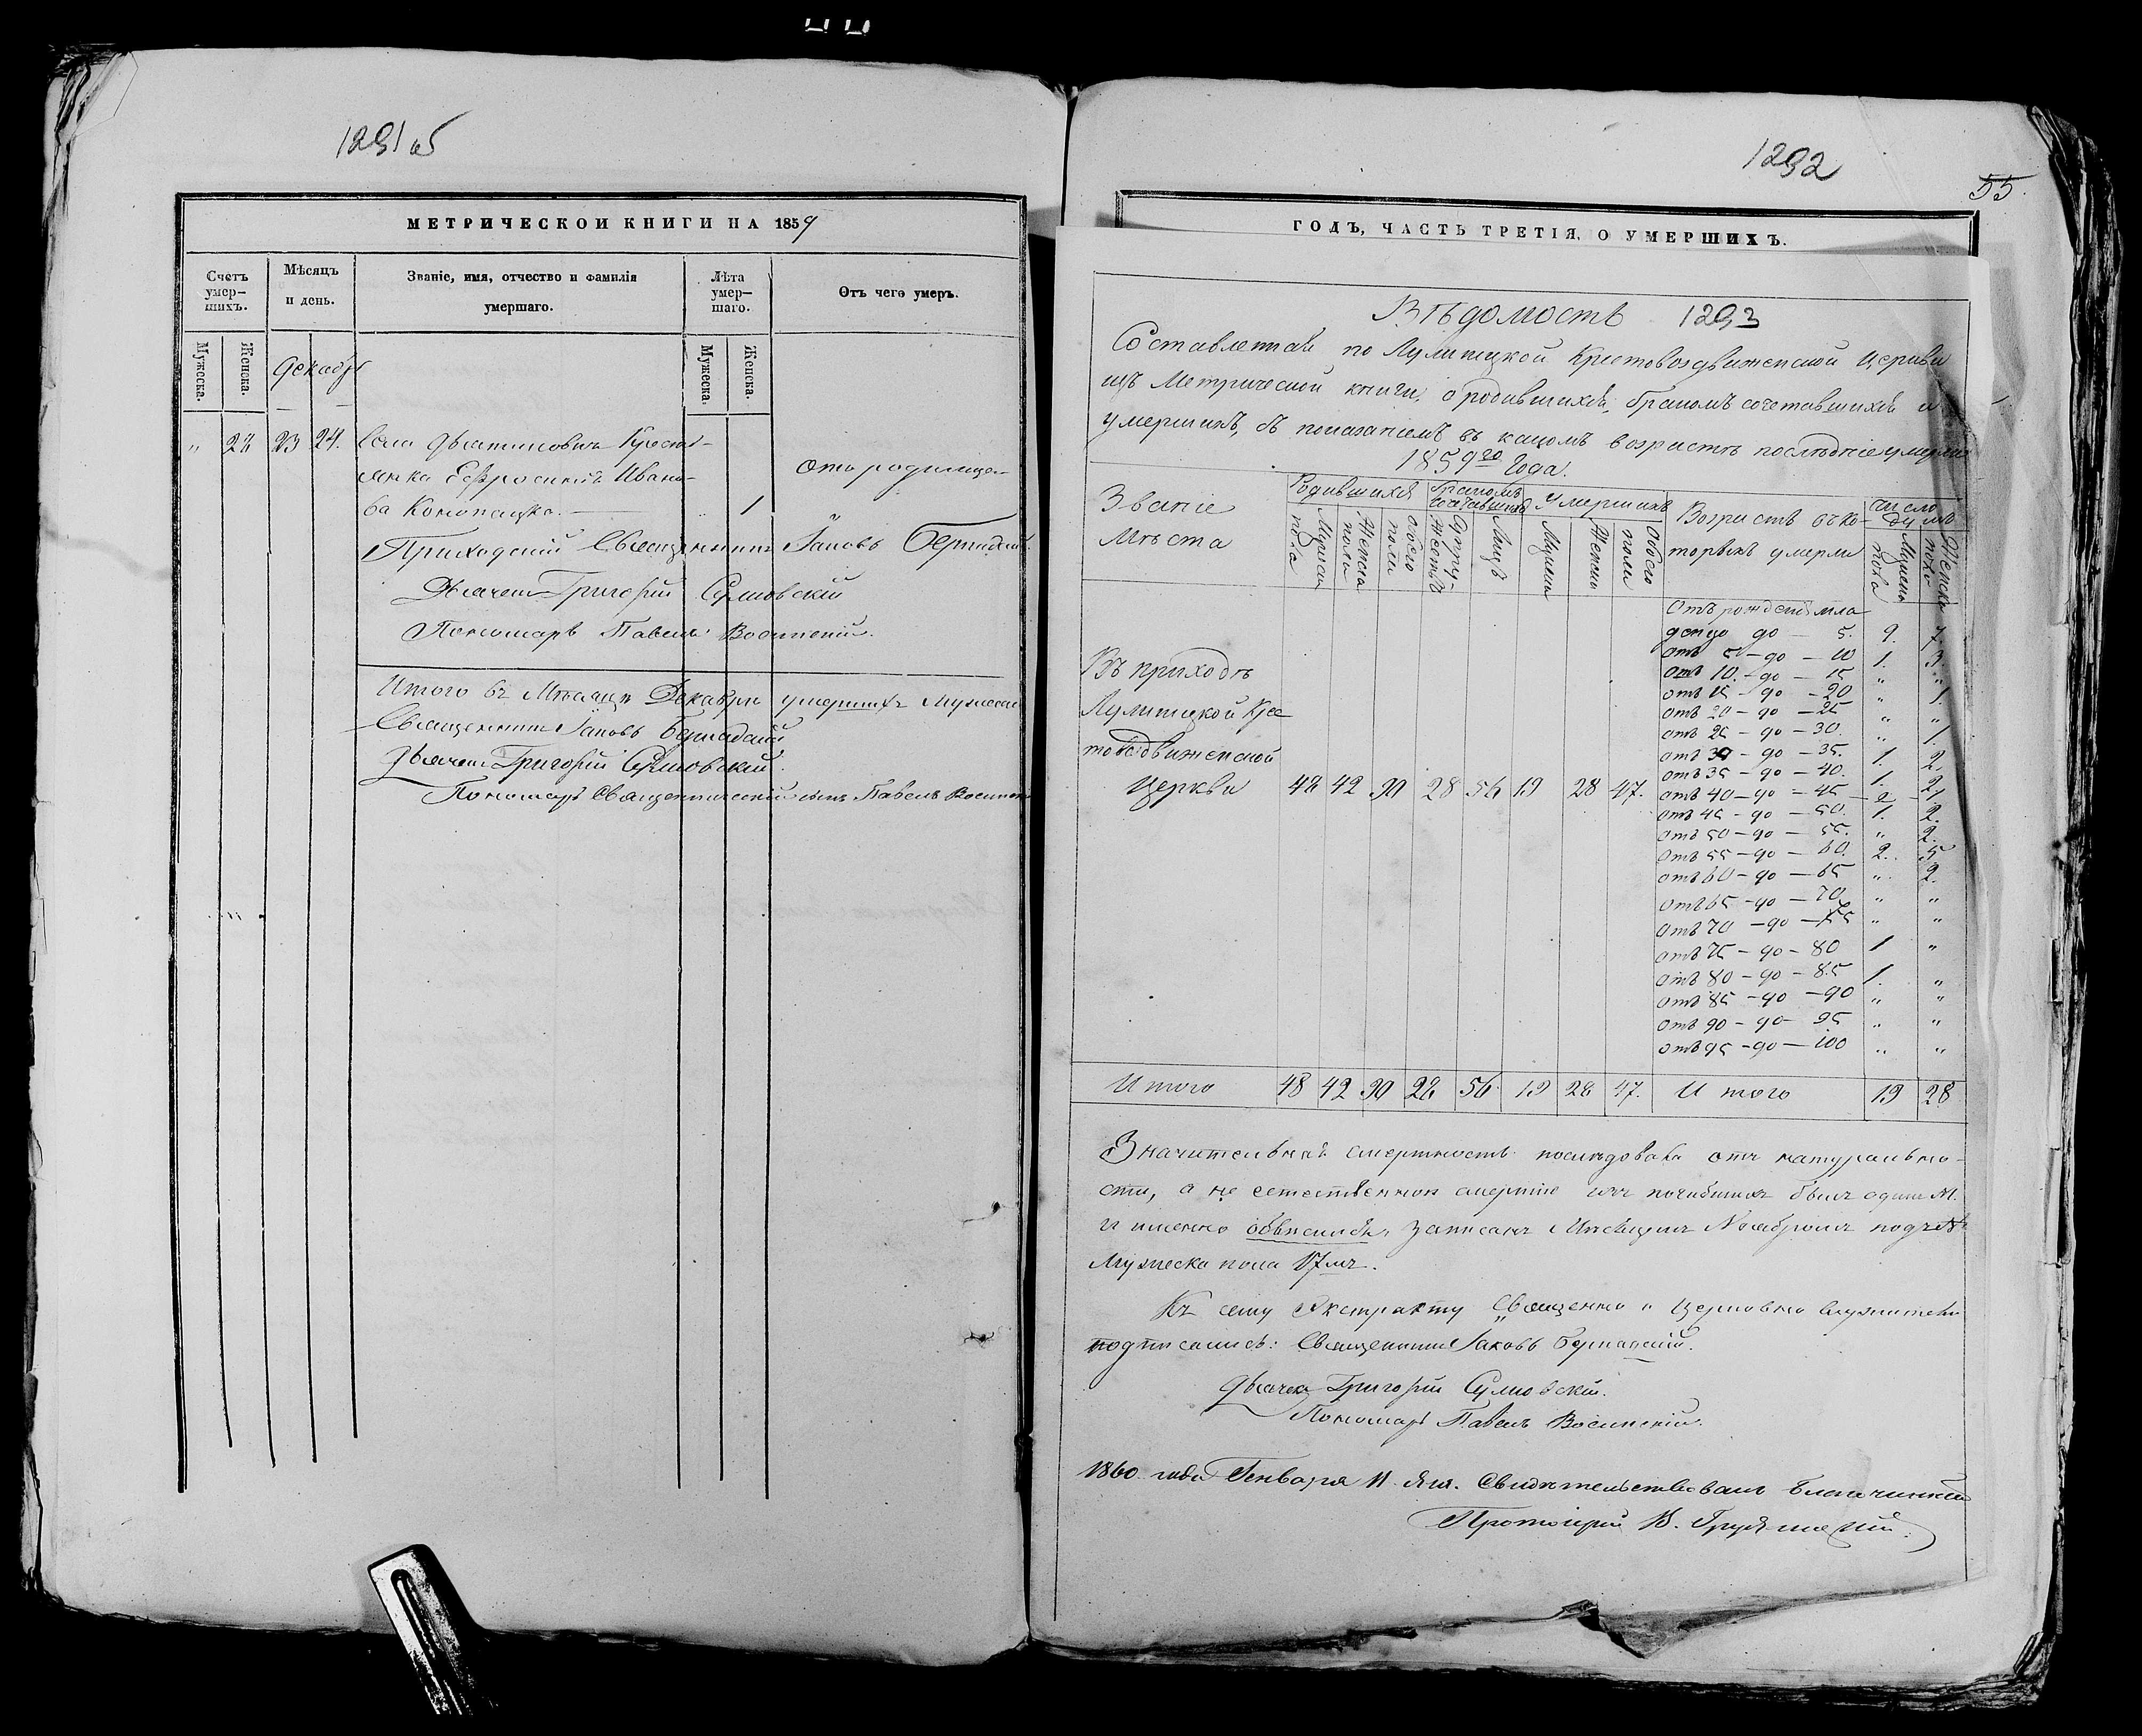 1291 об
МЕТРИЧЕСКОЙ КНИГИ НА 1859
Счетъ умер-шихъ.
Мѣсяцъ и день.
Званіе, имя, отчество и фамилія умершаго.
Лѣта умер-шаго.
Отъ чего умеръ.
Мужеска. Женска.
Декабрь
Мужеска. Женска.
" 28 23 24. Села Кресть-
янка Евфросинія Ивано- Отъ родимца
ва Конопацка. 1
Приходскій Священникъ Іаковъ
Дьячекъ Григорій Сулковскій
Пономарь Павелъ
Итого въ Мѣсяцѣ Декабрѣ умершихъ Мужеска
Священникъ Іаковъ
Дьячекъ Григорій Сулковскій
Пономарь Священническій сынъ Павелъ
1292
55.
ГОДЪ, ЧАСТЬ ТРЕТІЯ, О УМЕРШИХЪ.
Вѣдомость 1293
Составленная по Крестовоздвиженской Церкви
изъ Метрической книги, о родившихся, бракомъ сочетавшихся и
умершихъ, съ показаніемъ въ какомъ возрастѣ послѣдніе умерли
1859го Года.
Званіе Мѣста
Родившихся
Бракомъ сочетавшихся
Умершихъ
Возрастъ въ ко-торыхъ умерли
Число душъ
Мужеска пола Женска пола обоего пола Супру-жествъ Лицъ Мужска Женска Обоего пола Мужска пола Женска пола
Отъ рожденія мла
денцо до — 5. 9. 7.
отъ 5 — до — 10 1. 3.
Въ приходѣ
отъ 10. — до — 15 " "
отъ 15 — до — 20 " 1.
отъ 20 — до — 25 " "
Крес
отъ 25 — до — 30. " 1.
товоздвиженской
отъ 30 — до — 35. 1. 2
отъ 35 — до — 40. 1. 2
Церкви 48 42 90 28 56 19 28 47.
отъ 40 — до — 45 — 2 — 1
отъ 45 — до — 50. 1. 2.
отъ 50 — до — 55. " 2.
отъ 55 — до — 60. 2. 5
отъ 60 — до — 65 " 2.
отъ 65 — до — 70 " "
отъ 70 — до — 75 " "
отъ 75 — до — 80 1 "
отъ 80 — до — 85 1. "
отъ 85 — до — 90 " "
отъ 90 — до — 95 " "
отъ 95 — до — 100 " "
Итого 48 42 90 28 56 19 28 47. Итого 19 28
Значительная смертность послѣдовала отъ натурально-
сти, а не естественною смертію изъ погибшихъ былъ одинъ М.
и именно объ записанъ Мѣсяцемъ Ноябремъ подъ №
Мужеска пола 17мъ.
Къ сему Экстракту Священно и Церковно Служители
подписались: Священникъ Іаковъ
Дьячекъ Григорій Сулковскій.
Пономарь Павелъ
1860 года Генваря 11 дня. Свидѣтельствовалъ Благочинный
Протоіерей В.